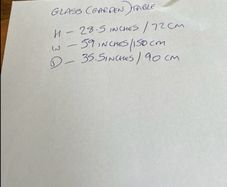 GLASS (GARDEN) TABLE
H - 28.5 INCHES / 72CM
W - 59 INCHES/150CM
D - 35.5 INCHES / 90 CM